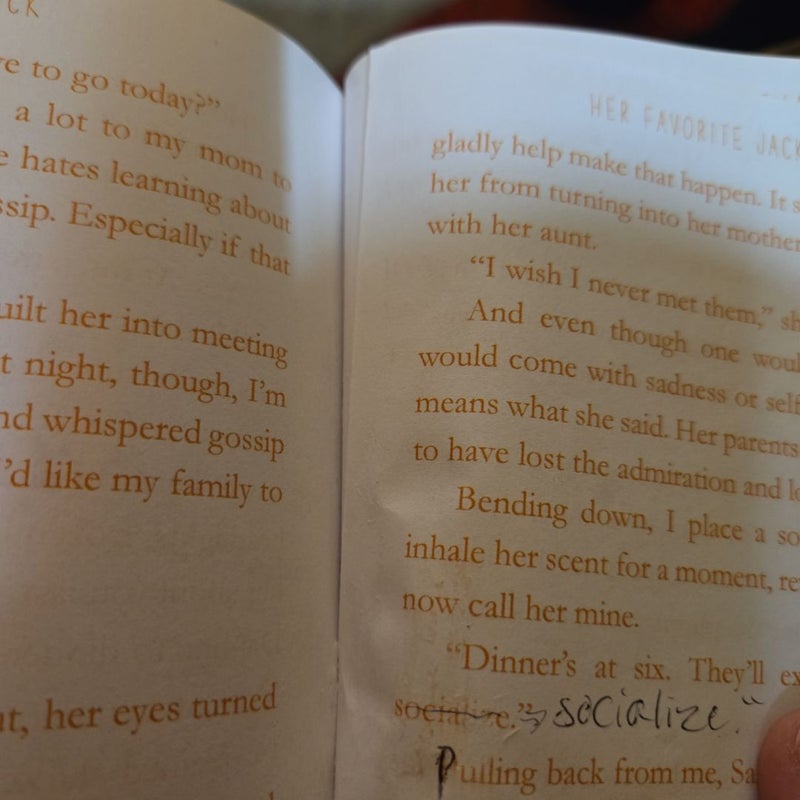 CK
e to go today?”
a lot to my mom to
e hates learning about
ssip. Especially if that
uilt her into meeting
t night, though, I’m
nd whispered gossip
’d like my family to
t, her eyes turned
HER FAVORITE JACK
gladly help make that happen. It s
her from turning into her mother
with her aunt.
“I wish I never met them,” sh
And even though one woul
would come with sadness or self
means what she said. Her parents
to have lost the admiration and l
Bending down, I place a so
inhale her scent for a moment, re
now call her mine.
“Dinner’s at six. They’ll ex
socialize.” socialize.“
Pulling back from me, Sa